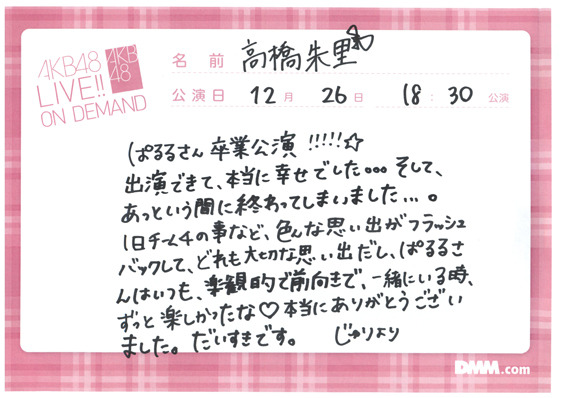 AKB48
LIVE!!
ON DEMAND
AKB
48
名前 高橋朱里
公演日 12月 26日 18:30 公演
ぱるるさん 卒業公演 !!!!!☆
出演できて、本当に幸せでした... そして、
あっという間に終わってしまいました...。
旧チーム4の事など、色んな思い出がフラッシュ
バックして、どれも大切な思い出だし、ぱるるさ
んはいつも、楽観的で前向きで、一緒にいる時、
ずっと楽しかったな♡本当にありがとうござい
ました。だいすきです。 じゅりより
DMM.com